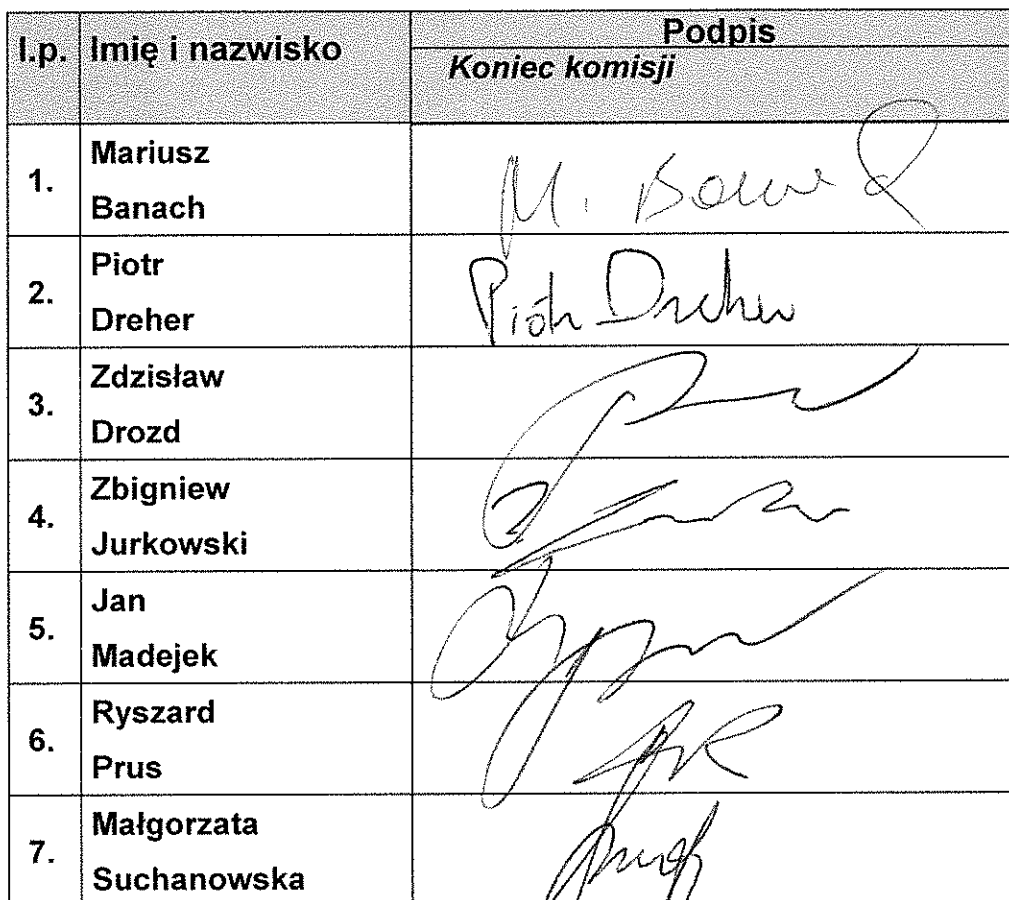 l.p. Imię i nazwisko Podpis
Koniec komisji
1. Mariusz
Banach M. Banach
2. Piotr
Dreher Piotr Dreher
3. Zdzisław
Drozd
4. Zbigniew
Jurkowski
5. Jan
Madejek
6. Ryszard
Prus
7. Małgorzata
Suchanowska